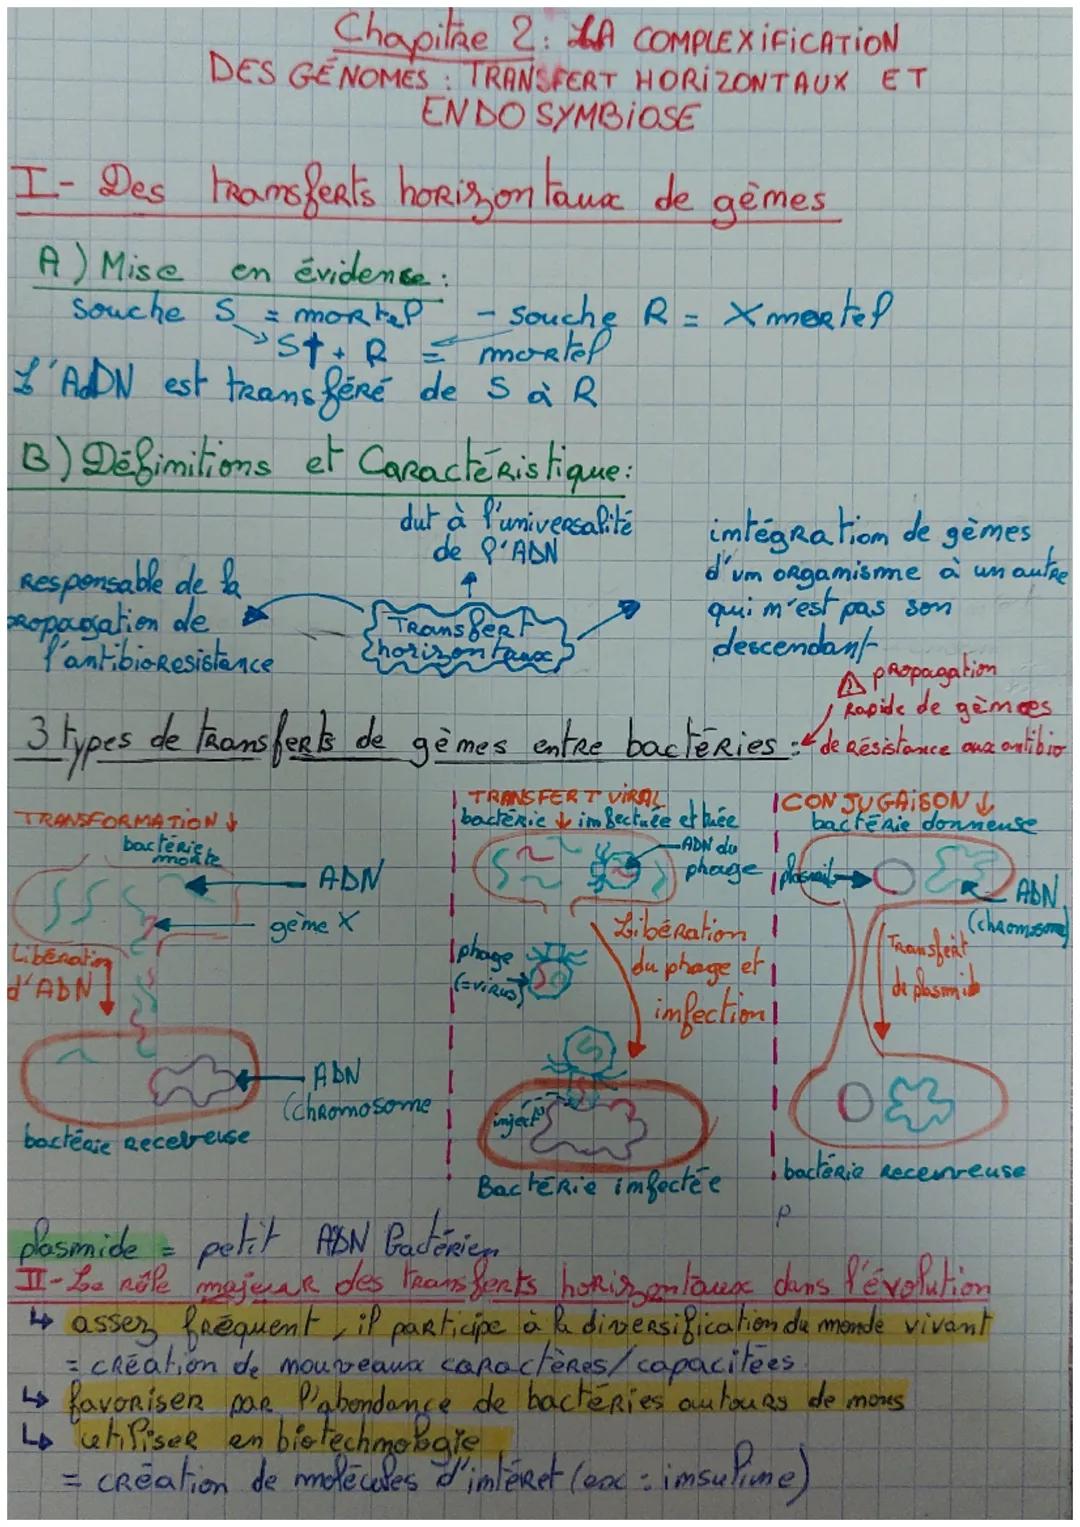 Chapitre 2: LA COMPLEXIFICATION
DES GÉNOMES : TRANSFERT HORIZONTAUX ET
ENDOSYMBIOSE
I- Des transferts horizontaux de gènes
A) Mise en évidence :
souche S = mortel - souche R = X mortel
S† + R = mortel
L'ADN est transféré de S à R
B) Définitions et Caractéristique:
dut à l'universalité
de l'ADN
intégration de gènes
d'un organisme à un autre
qui n'est pas son
descendant
Responsable de la
propagation de
l'antibiorésistance
Transfert
horizontaux
⚠ propagation
rapide de gènes
de résistance aux antibio
3 types de transferts de gènes entre bactéries :
TRANSFORMATION ↓
bactérie
morte
ADN
gène X
Libération
d'ADN
ADN
(chromosome
bactérie receveuse
TRANSFERT VIRAL
bactérie ↓ infectée et tuée
ADN du
phage
Libération
du phage et
infection
phage
(=virus)
inject°
Bactérie infectée
CONJUGAISON ↓
bactérie donneuse
plasmid
ADN
(chromosome)
Transfert
de plasmid
bactérie receveuse
P
plasmide = petit ADN Bactérien
II- Le rôle majeur des transferts horizontaux dans l'évolution
↳ assez fréquent, il participe à la diversification du monde vivant
= création de nouveaux caractères/capacitées
↳ favoriser par l'abondance de bactéries autours de nous
↳ utiliser en biotechnologie
= création de molécules d'intéret (ex : insuline)